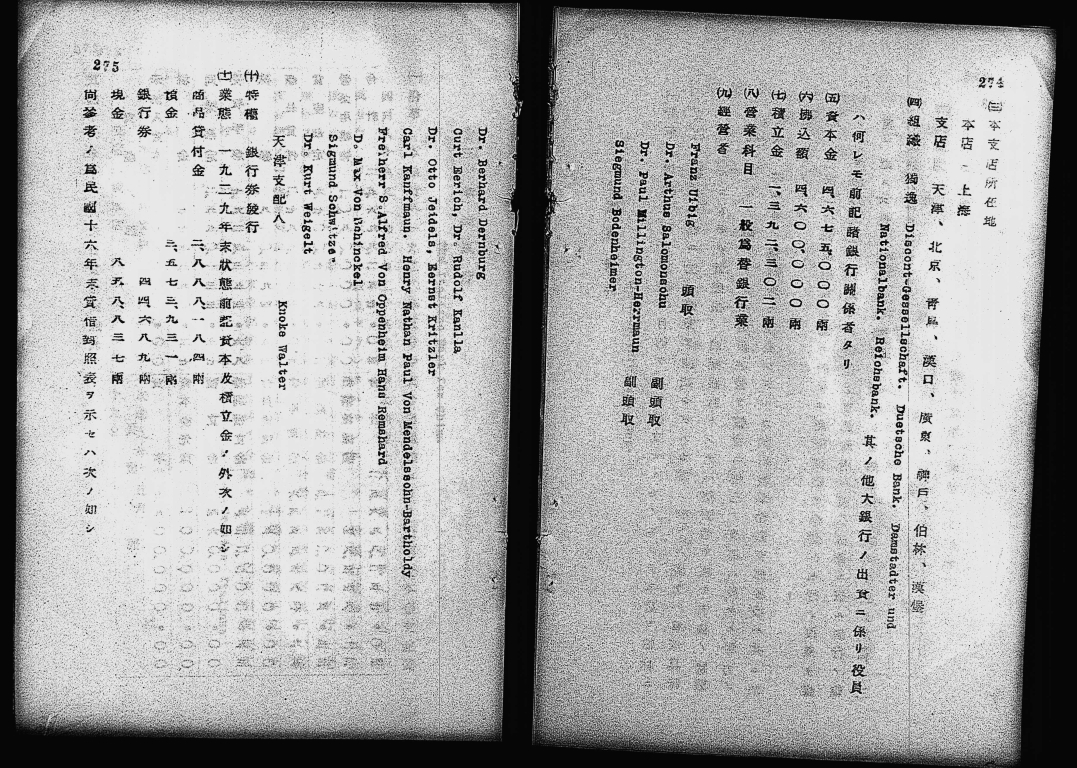 274
(三) 本支店所在地
本店 上海
支店 天津、北京、青島、漢口、廣東、神戸、伯林、漢堡
(四) 組織 獨逸 Discont-Gessellschaft. Duetsche Bank. Damstadter und
Nationalbank. Reichsbank. 其ノ他大銀行ノ出資ニ係リ役員
ハ何レモ前記諸銀行關係者タリ
(五) 資本金 四、六七五、〇〇〇兩
(六) 拂込額 四、六〇〇、〇〇〇兩
(七) 積立金 一、三九二、三〇二兩
(八) 營業科目 一般爲替銀行業
(九) 經營者
Franz Urbig 頭取
Dr. Arthus Salomonsohu 副頭取
Dr. Paul Millington-Herrmaun 副頭取
Siegmund Bodenheimer
Dr. Berhard Dernburg
Curt Erich, Dr. Rudolf Kanlla
Dr. Otto Jeidels, Eernst Kritzler
Carl Kauffmaun. Henry Nathan Paul Von Mendelssohn-Bartholdy
Freiherr S. Alfred Von Oppenheim Hans Remshard
D. Max Von Schinckel
Sigmund Schwitze.
Dr. Kurt Weigelt
天津支配人 Knoke Walter
(十) 特權 銀行券發行
(十一) 業態 一九二九年末狀態前記資本及積立金ノ外次ノ如シ
商品貸付金 二、八八八、一八四兩
預金 三、五七三、九三一兩
銀行券 四四六八九兩
現金 八五八八三七兩
尚參考ノ爲民國十六年末貸借對照表ヲ示セハ次ノ如シ
275